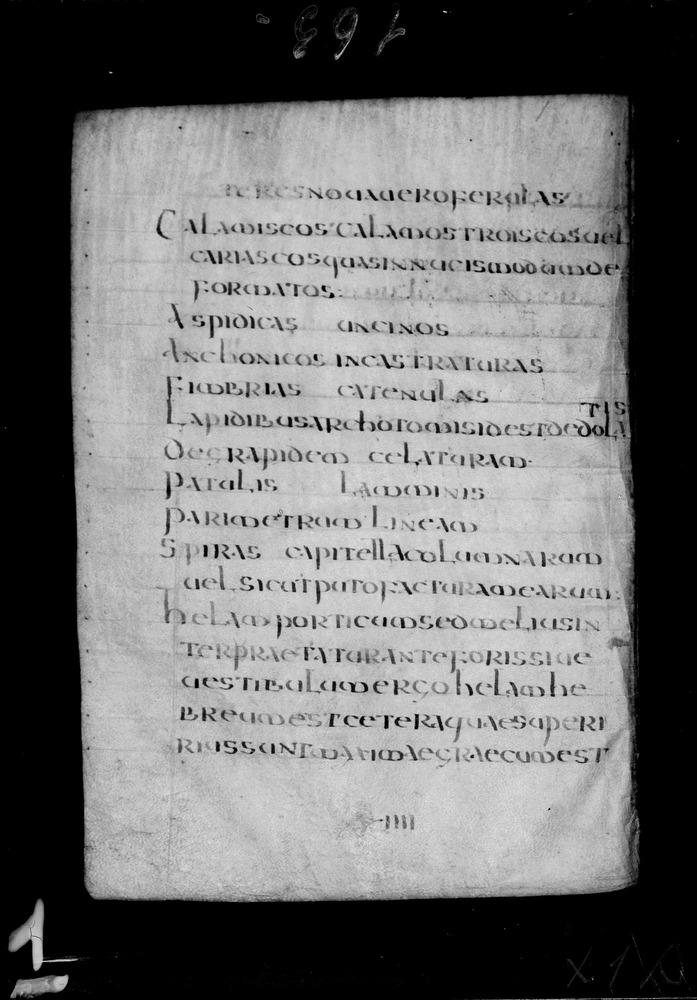 163
teresnouauero ferulas
Calamiscos calamos troiscos uel
cariascos quasi in nucis modum de
formatos
Aspidicas uncinos
Anchonicos incastraturas
Fimbrias catenulas
tis
Lapidibus archotomis id est de dola
de grapidem celaturam.
Patulis lamminis
Parimetrum lineam
Spiras capitella columnarum
uel sicut puto facturam earum:
helam porticum sed melius in
terpraetatur ante fores siue
uestibulum ergo helam he
breum est cetera quae superi
rius sunt maxima e graecum est
IIII
1